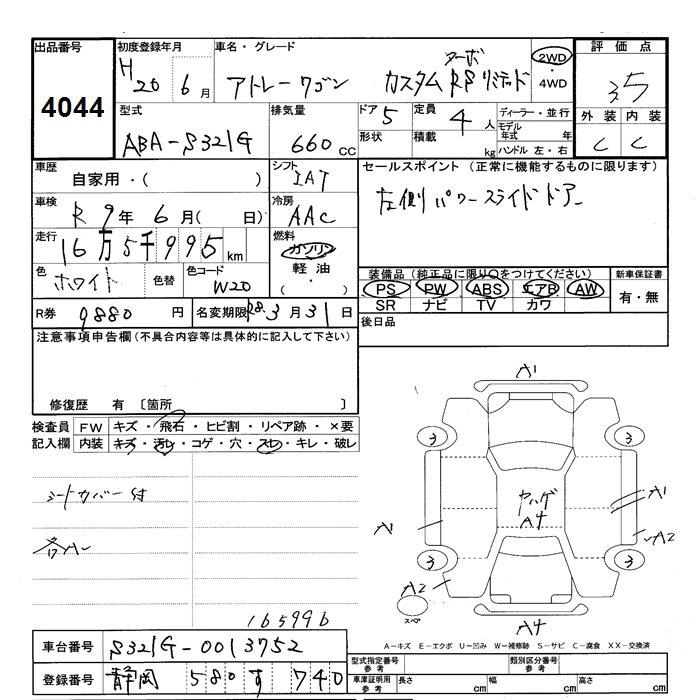 出品番号 初度登録年月 車名・グレード 評価点
4044 H20 6月 アトレーワゴン カスタムターボRSリミテッド 2WD・4WD 3.5
型式 排気量 ドア 5 定員 4人 ディーラー・並行 外装 内装
ABA-S321G 660cc 形状 積載 kg モデル年式 年 ハンドル 左・右 C C
車歴 自家用・( ) シフト IAT セールスポイント (正常に機能するものに限ります)
車検 R9年6月( 日) 冷房 AAC 左側パワースライドドアー
走行 16万5千995km 燃料 ガソリン
色 ホワイト 色替 色コード W20 軽油 ( ・ )
装備品(純正品に限り○をつけてください) 新車保証書
PS PW ABS エアB AW 有・無
SR ナビ TV カワ
R券 9880円 名変期限 R8.3月31日 後日品
注意事項申告欄(不具合内容等は具体的に記入して下さい)
修復歴 有 〔箇所 〕
検査員記入欄 FW キズ・飛石・ヒビ割・リペア跡・×要
内装 キズ・汚レ・コゲ・穴・スレ・キレ・破レ
シートカバー付
A1
3 3
ヤハゲ
A4
A1 A1
A2
3 3
A2
スペア
A4
165996
A-キズ E-エクボ U-凹み W-補修跡 S-サビ C-腐食 XX-交換済
車台番号 S321G-0013752
登録番号 静岡 580 す 740
型式指定番号 参考 類別区分番号 参考
車庫証明用 参考 長さ cm 幅 cm 高さ cm